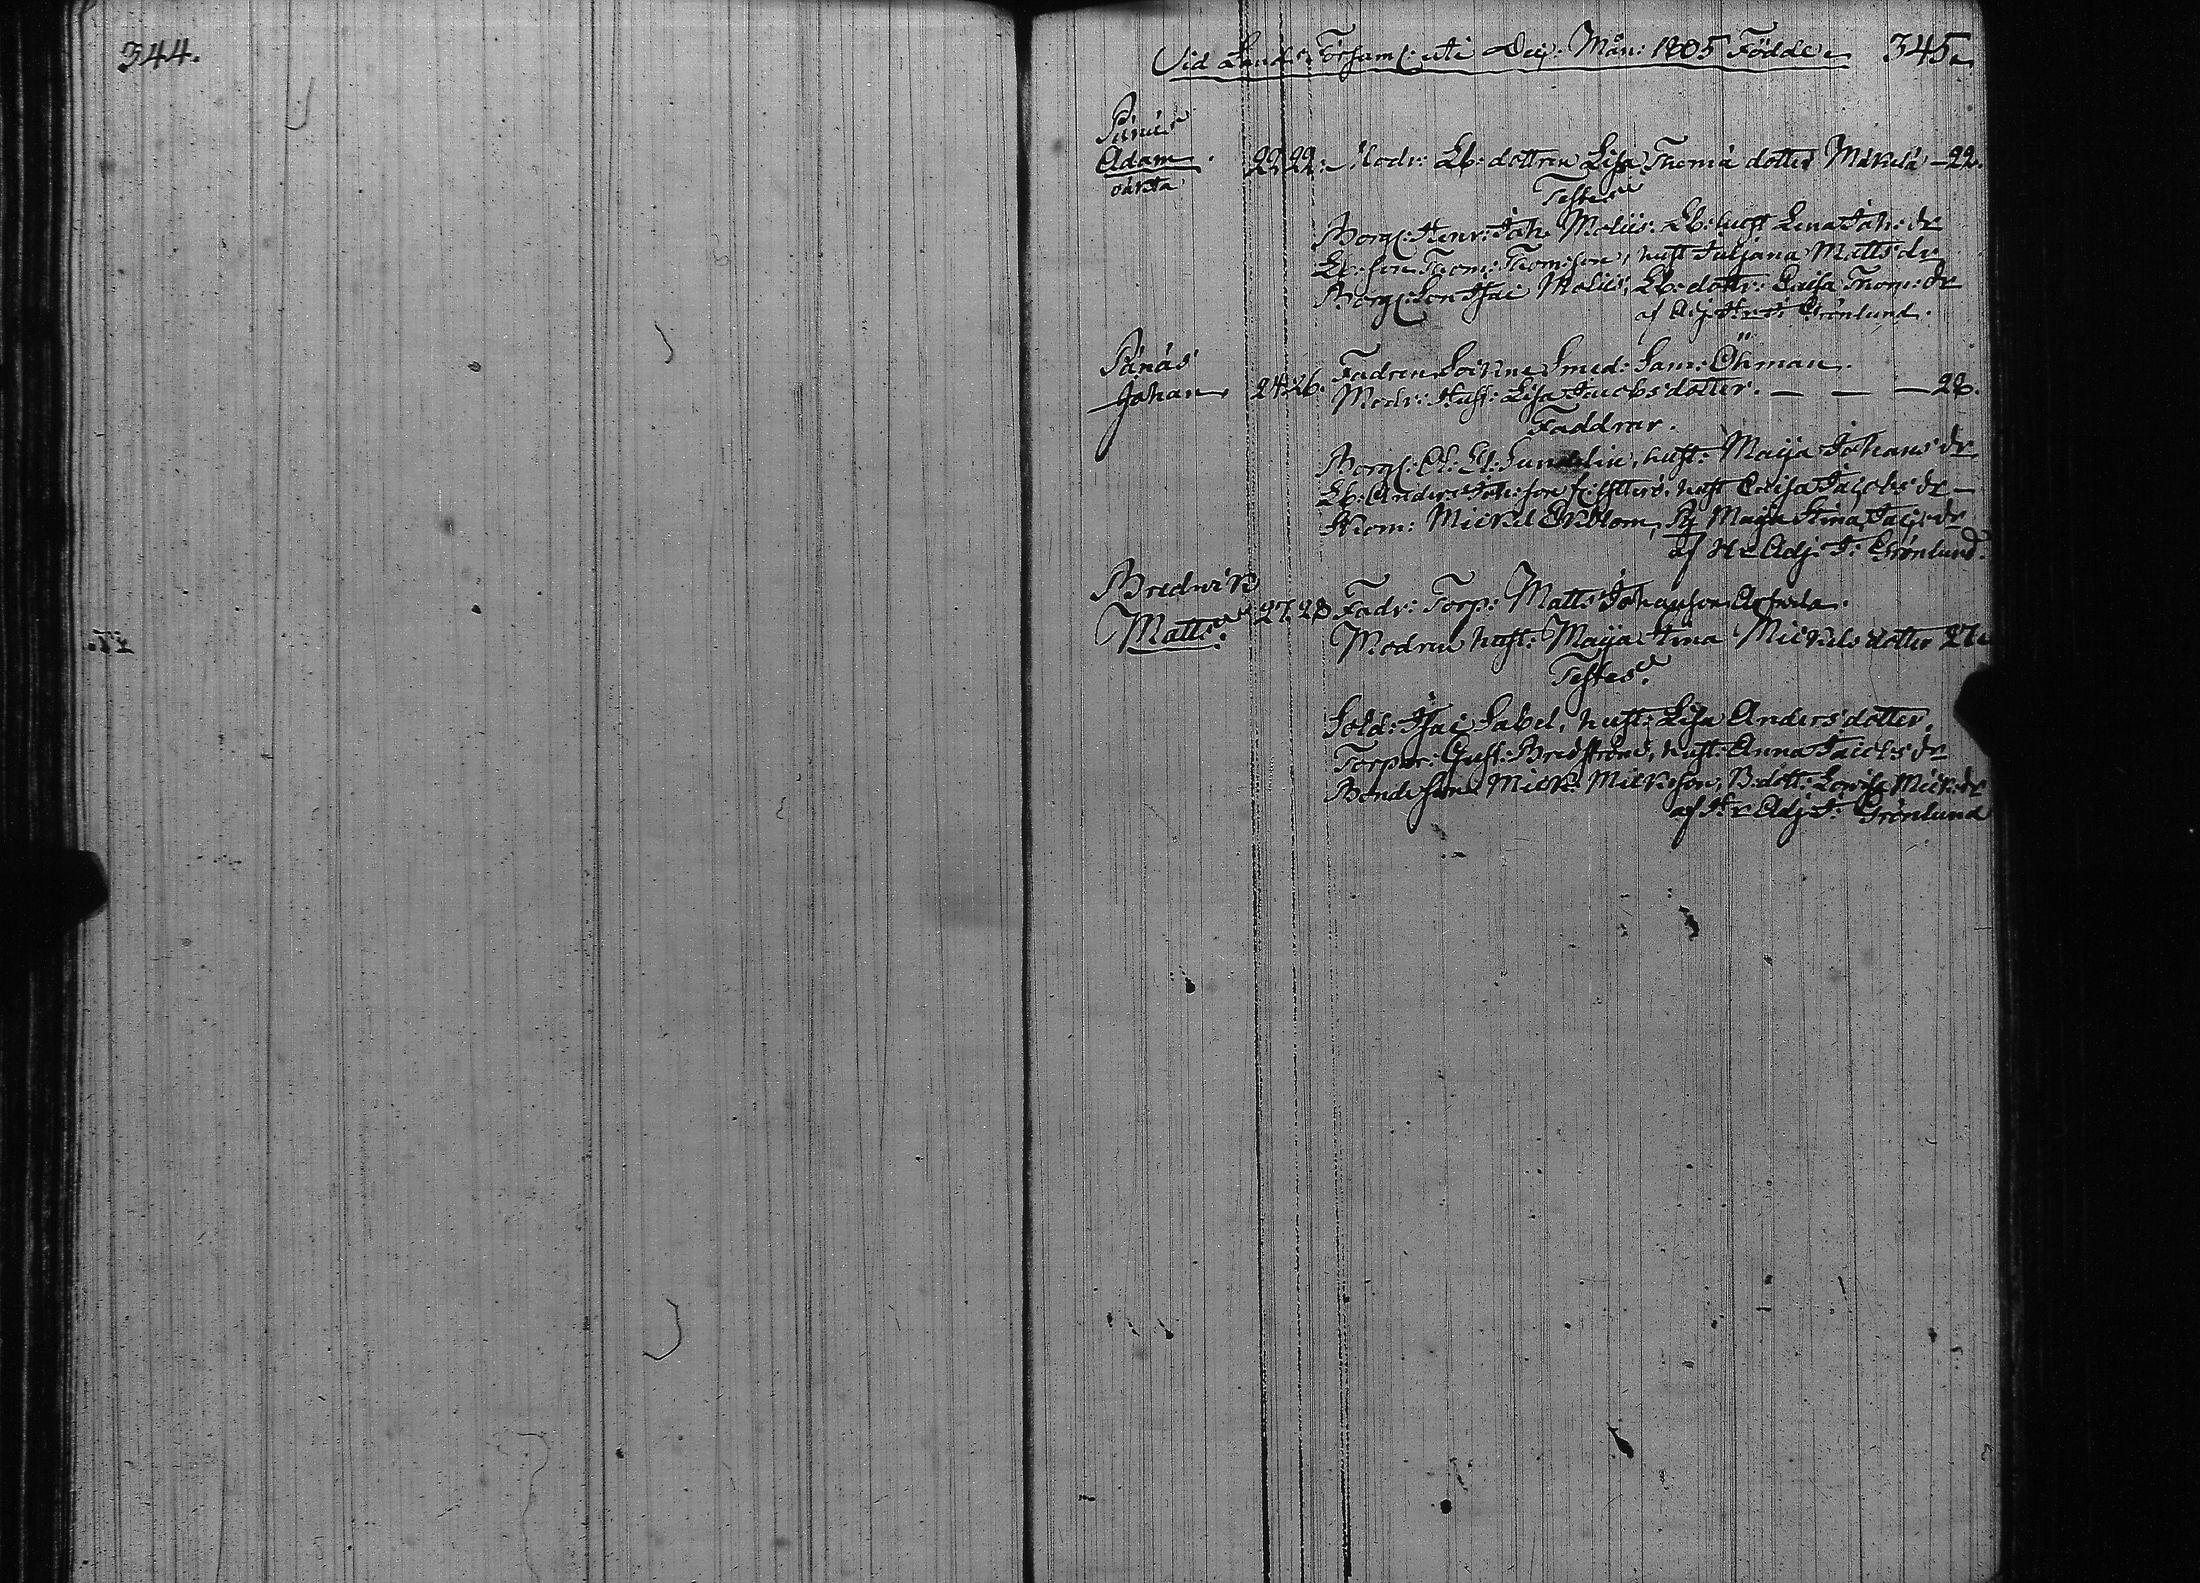 344.
Vid Lands Församl: uti Dec: Mån: 1805 Födde
345.
Pänäs
Adam
oäkta
22. 22. Modr: Lb: dottren Lisa Thomæ dotter Mäkelä — 22.
Testes
Borg: Henr: Joh: Moliis: Lb: hust Lena Joh: dr
Lb: son Thom: Thomson, hust Juljana Matts dr
Borg: Son Isac Moliis, Lb: dottr: Caisa Thom: dr
af Adj: Hr J: Grönlund.
Pänäs
Johan. 24. 26. Fadren Smed: Sam: Öhman.
Modr: Hust: Lisa Jacobs dotter. — — — 28.
Faddrar.
Borg: Sundelin, hust: Maija Johans dr
Lb: Anders Joh: son hust Caisa Jacobs dr —
Mickel Ekblom, Maja Stina Jac: dr
af Hr Adj: J: Grönlund.
Bredwik
Matts. 27. 28 Fadr: Torp: Matts Johansson
Modren hust: Maija Stina Mickels dotter 27.
Testes.
Sold: Isac Sabel, hust: Lisa Anders dotter,
Torpar: Gust: Bredström, hust: Anna Jacobs dr
Bonde son Mick: Mickson, B: dott: Lovisa Mick: dr
af Hr Adj: J: Grönlund